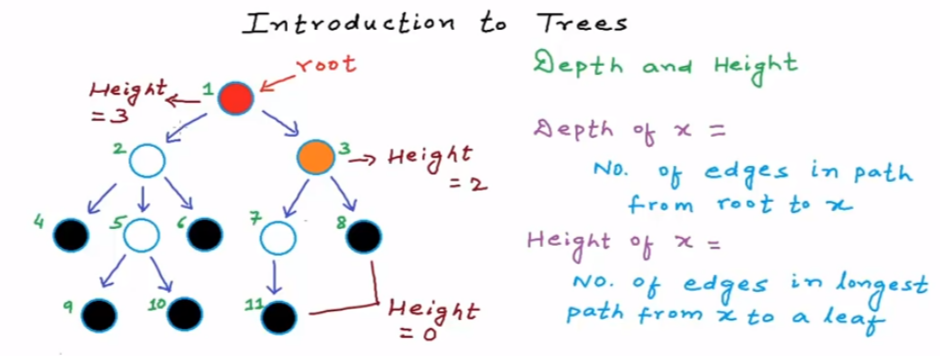 Introduction to Trees
root
Height
= 3
1
2
3
Height
= 2
4
5
6
7
8
9
10
11
Height
= 0
Depth and Height
Depth of x =
No. of edges in path
from root to x
Height of x =
No. of edges in longest
path from x to a leaf